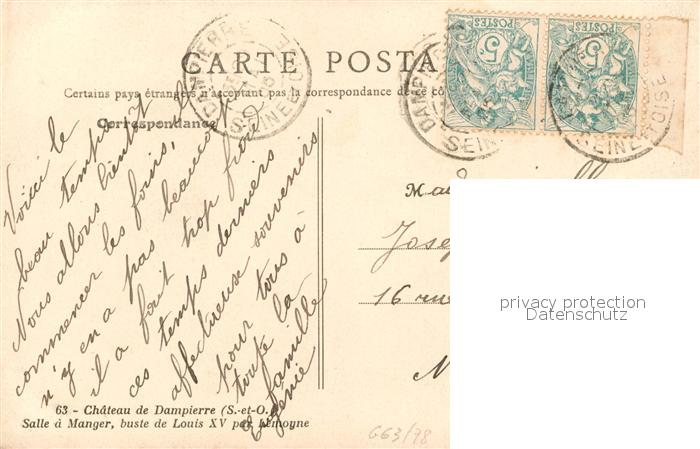 CARTE POSTA
Certains pays étrangers n'acceptant pas la correspondance de ce cô
Correspondance
DAMPIERRE
SEINE
DAMP
SEINE
SEINE ET OISE
POSTES
5
POSTES
5
Voici le
beau temps
Nous allons bientôt
commencer les foins,
n'y en a pas beaucoup
il a fait trop froid
ces temps derniers
affectueux souvenirs
pour tous à
toute la
famille
Eugénie
Ma
Jose
16 rue
63 - Château de Dampierre (S.-et-O.)
Salle à Manger, buste de Louis XV par Lemoyne
G63/78
privacy protection
Datenschutz